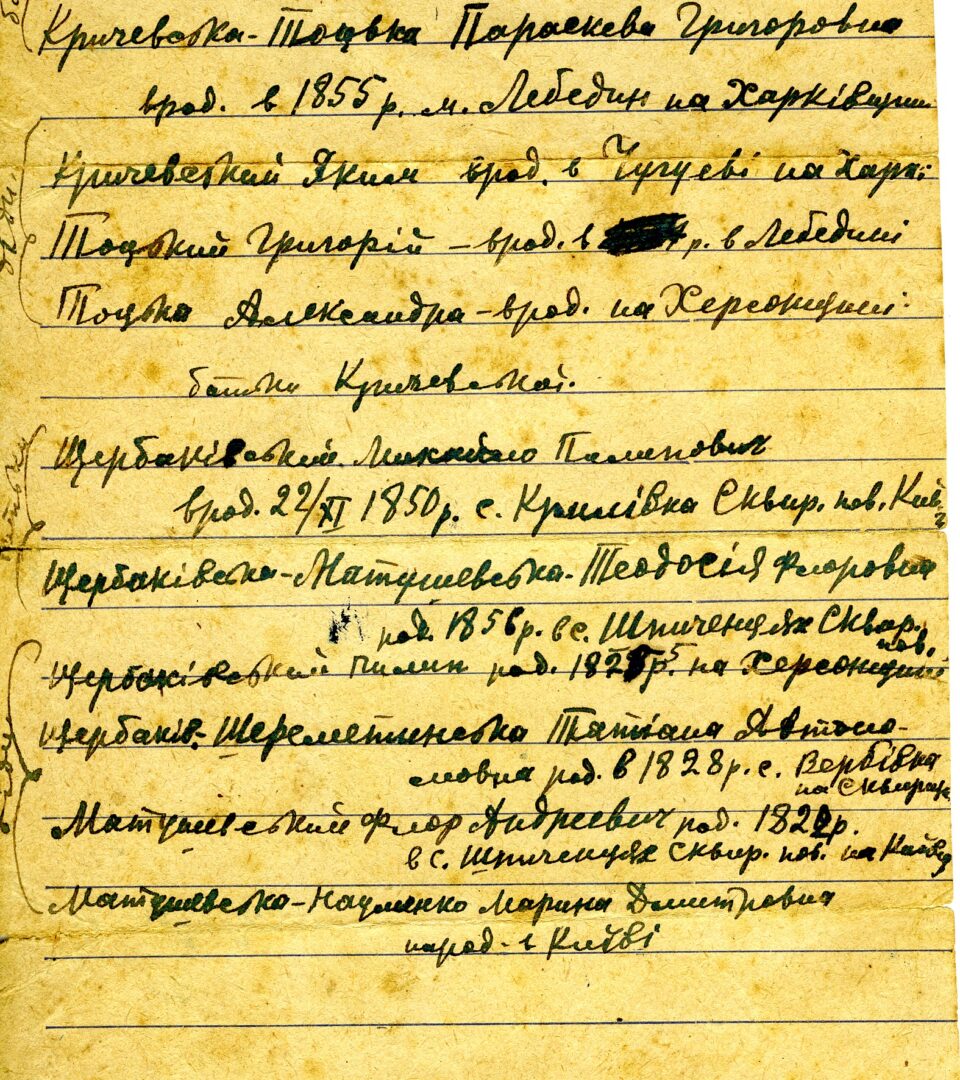 Кричевська-Тоцька Параскева Григоровна
врод. в 1855 р. м. Лебедин на Харківщині
Кричевський Яким врод. в Чугуєві на Харк:
Тоцький Григорій – врод. в р. в Лебедині
Тоцька Александра – врод. на Херсонщині.
батьки Кричевської.
Щербаківський Михайло Пилипович
врод. 22/XI 1850 р. с. Криливка Сквир. пов. Київ
Щербаківська-Матушевська Теодосія Флоровна
род. 1856 р. в с. Шпиченцях Сквир.
пов.
Щербаківський Пилип род. 1825 р. на Херсонщині
Щербаків. Шереметинська Татіана Автоно-
мовна род. в 1828 р. с. Вербівка
на Сквирщ
Матушевський Флор Андриевич род. 182 р.
в с. Шпиченцях Сквир. пов. на Київщ
Матушевська-Науменко Марина Дмитровна
народ. в Київі